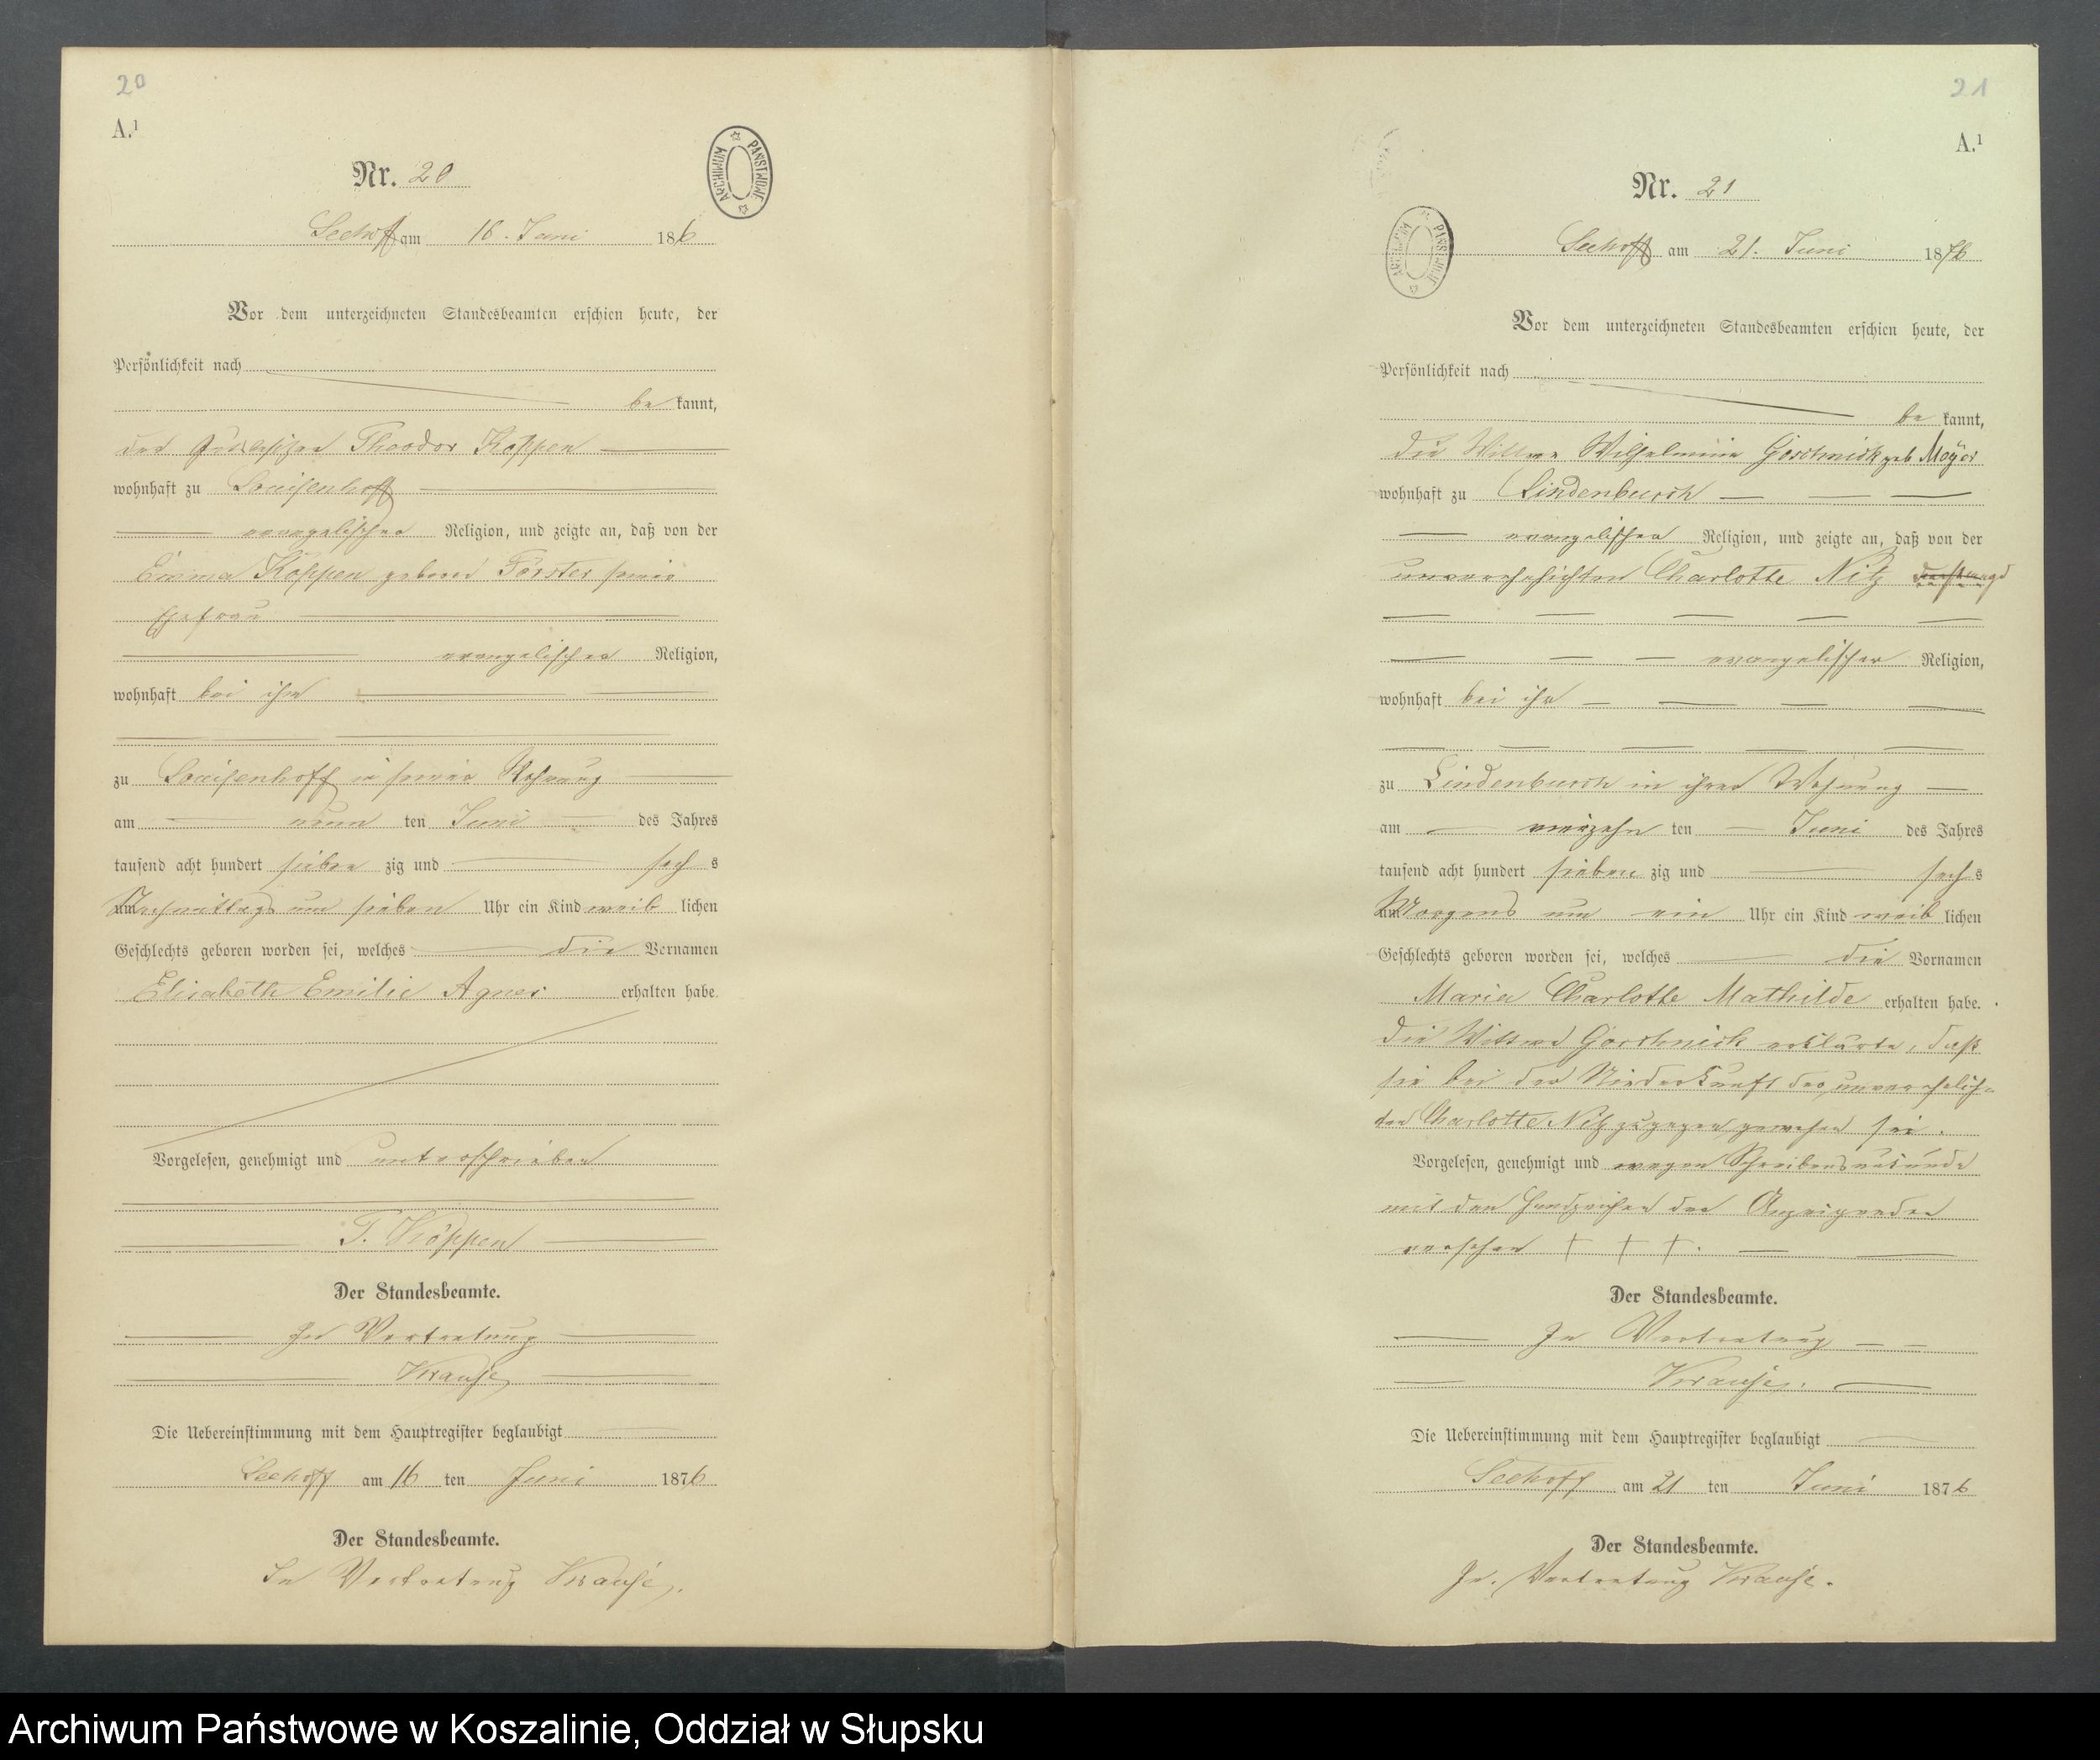 20
A.¹
Nr. 20
ARCHIWUM PAŃSTWOWE
Seehoff am 16. Juni 186
Vor dem unterzeichneten Standesbeamten erschien heute, der
Persönlichkeit nach
be kannt,
der Gutsbesitzer Theodor Köppen
wohnhaft zu Louisenhoff
evangelischer Religion, und zeigte an, daß von der
Emma Köppen geboren Förster seine
Ehefrau
evangelischer Religion,
wohnhaft bei ihm
zu Louisenhoff in seiner Wohnung
am neun ten Juni des Jahres
tausend acht hundert sieben zig und sech s
Nachmittags um sieben Uhr ein Kind weib lichen
Geschlechts geboren worden sei, welches die Vornamen
Elisabeth Emilie Agnes erhalten habe.
Vorgelesen, genehmigt und unterschrieben
T. Köppen
Der Standesbeamte.
In Vertretung
Krause
Die Uebereinstimmung mit dem Hauptregister beglaubigt
Seehoff am 16 ten Juni 1876
Der Standesbeamte.
In Vertretung Krause.
21
A.¹
Nr. 21
ARCHIWUM PAŃSTWOWE
Seehoff am 21. Juni 1876
Vor dem unterzeichneten Standesbeamten erschien heute, der
Persönlichkeit nach
be kannt,
die Wittwe Wilhelmine Goschnick geb Meyer
wohnhaft zu Lindenbusch
evangelischer Religion, und zeigte an, daß von der
unverehelichten Charlotte Nitz
evangelischer Religion,
wohnhaft bei ihr
zu Lindenbusch in ihrer Wohnung
am vierzehn ten Juni des Jahres
tausend acht hundert sieben zig und sech s
Morgens um ein Uhr ein Kind weib lichen
Geschlechts geboren worden sei, welches die Vornamen
Maria Charlotte Mathilde erhalten habe.
Die Wittwe Goschnick erklärte, daß
sie bei der Niederkunft der unverehelich-
ten Charlotte Nitz zugegen gewesen sei.
Vorgelesen, genehmigt und wegen Schreibensunkunde
mit den Handzeichen der Anzeigenden
versehen + + +.
Der Standesbeamte.
In Vertretung
Krause.
Die Uebereinstimmung mit dem Hauptregister beglaubigt
Seehoff am 21 ten Juni 1876
Der Standesbeamte.
In. Vertretung Krause.
Archiwum Państwowe w Koszalinie, Oddział w Słupsku